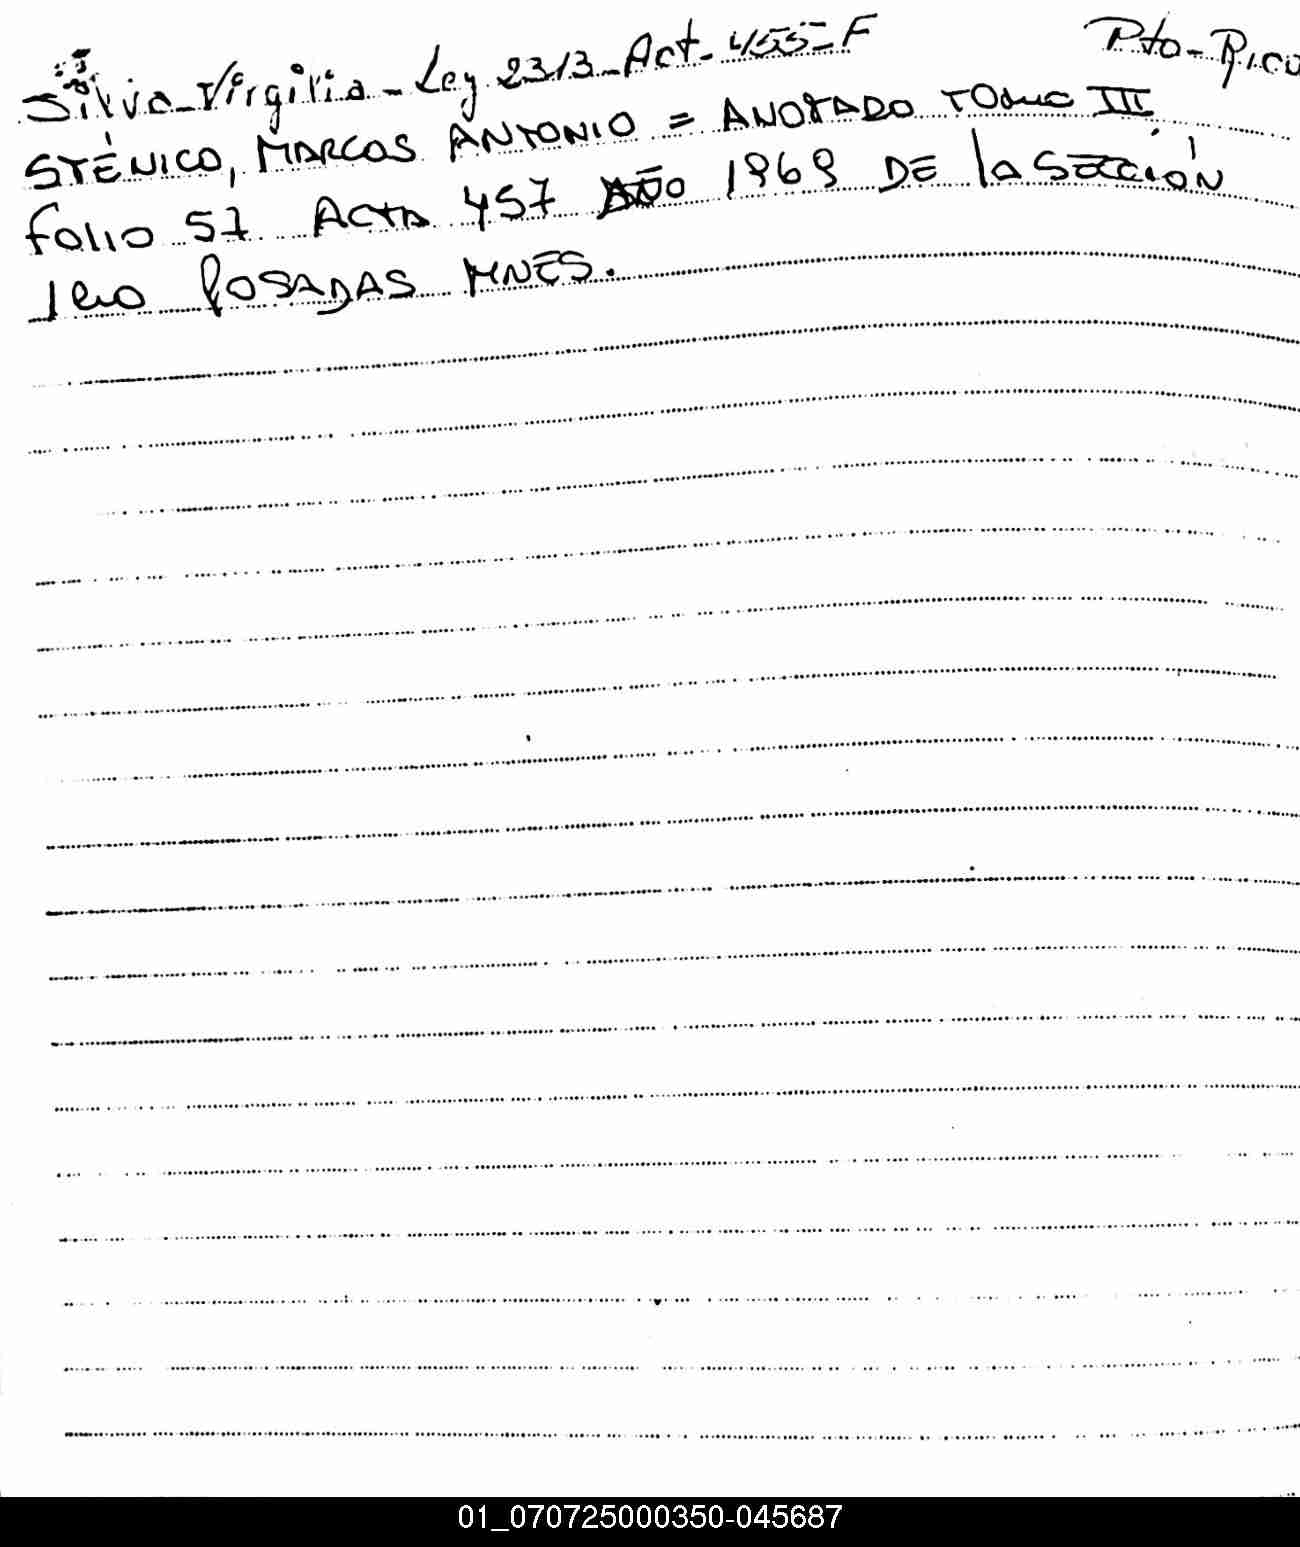 Silvia - Virgilia - Ley 2313 - Act - 455 - F Pto - Rico
STÉNICO, MARCOS ANTONIO = ANOTADO TOMO III
folio 57 ACTA 457 AÑO 1969 DE la SECCIÓN
1era POSADAS MNES.
01_070725000350-045687